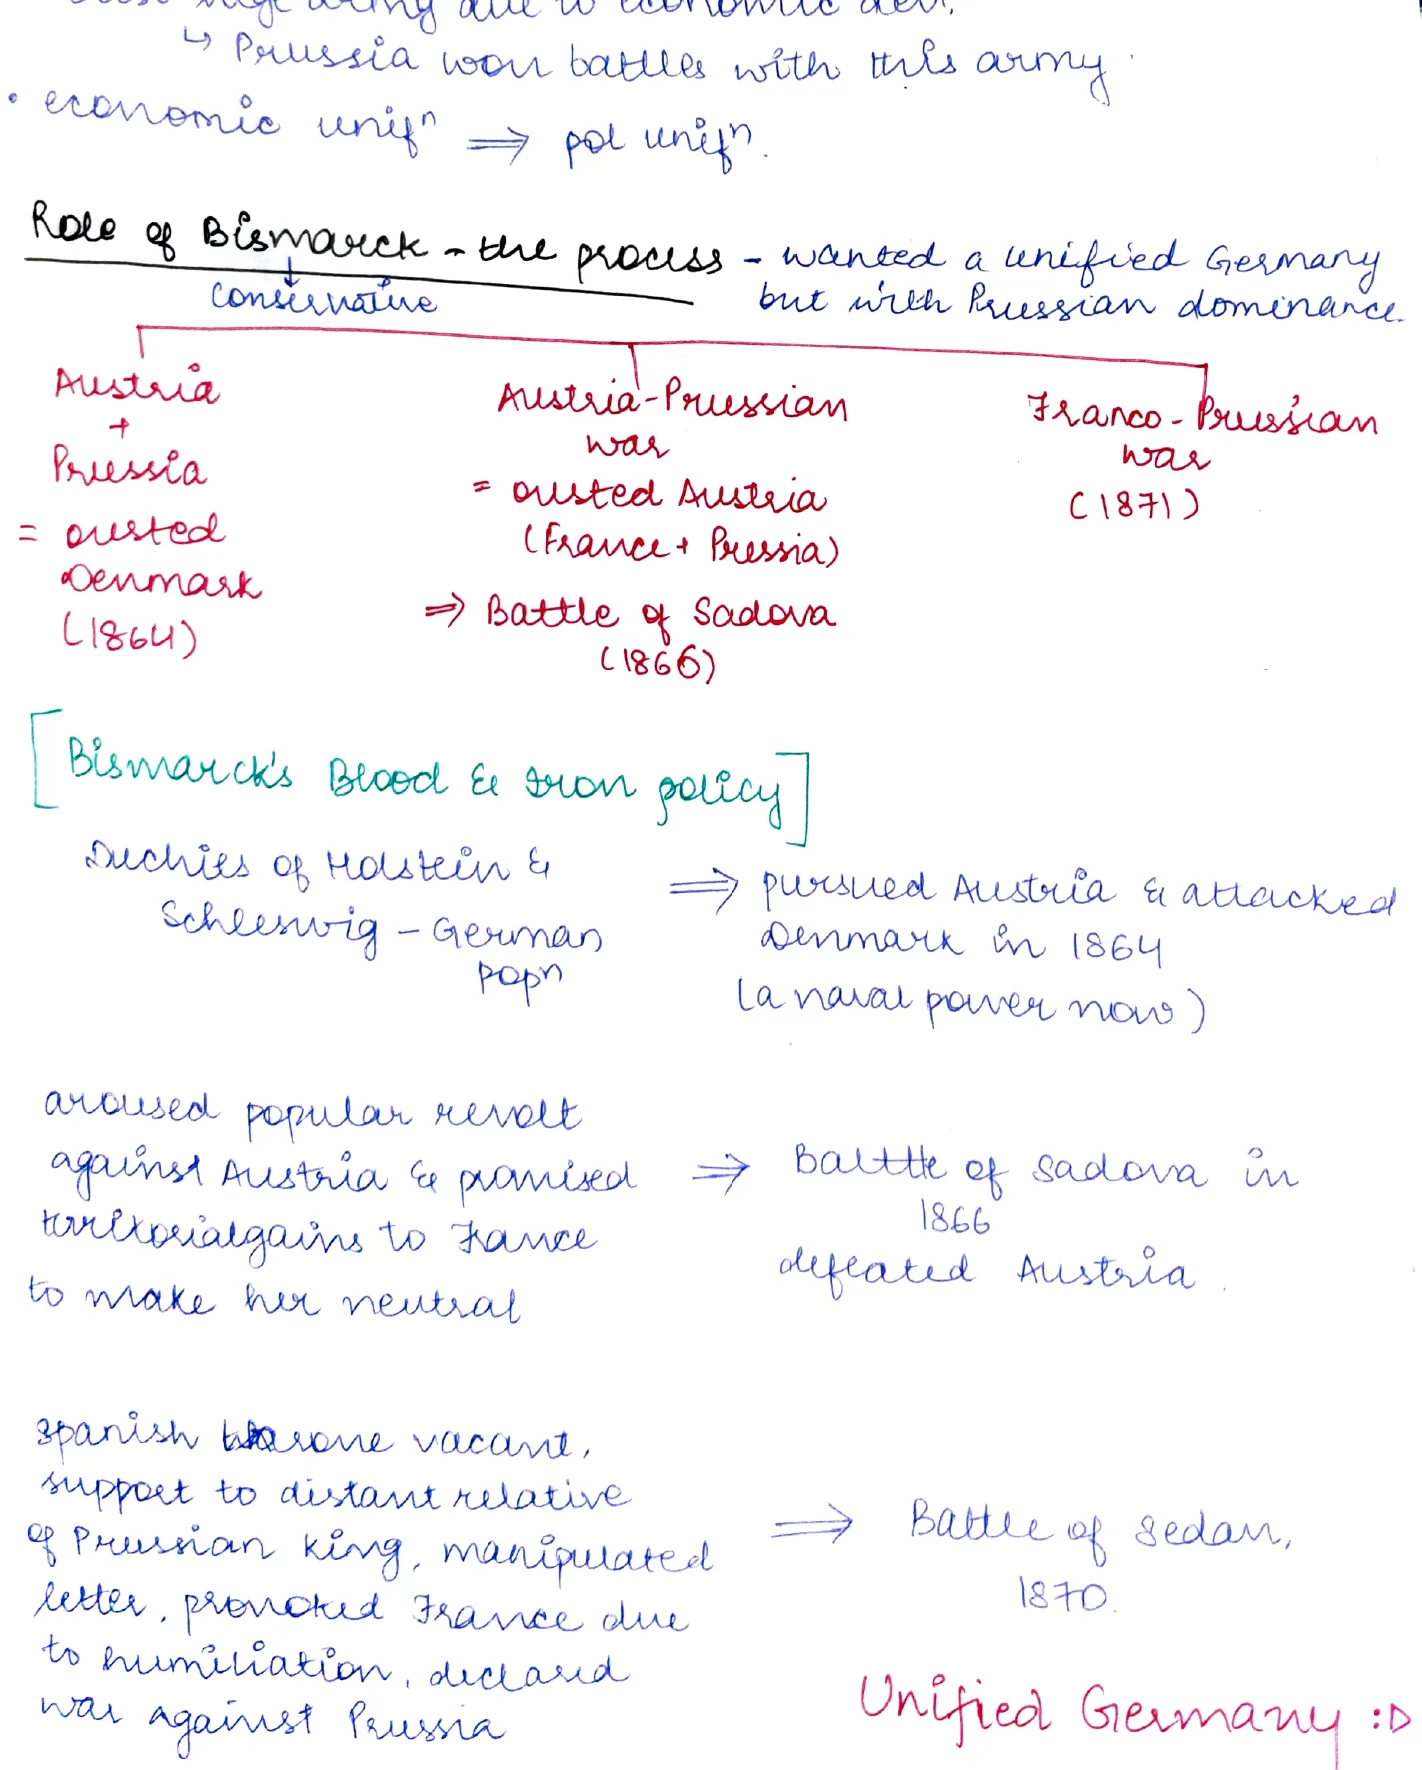 huge army due to economic dev.
↳ Prussia won battles with this army.
• economic unifⁿ ⇒ pol unifⁿ.
Role of Bismarck - the process - wanted a unified Germany
but with Prussian dominance.
↓
Conservative
Austria
+
Prussia
= ousted
Denmark
(1864)
Austria-Prussian
war
= ousted Austria
(France + Prussia)
⇒ Battle of Sadova
(1866)
Franco-Prussian
war
(1871)
[Bismarck's Blood & Iron policy]
Duchies of Holstein &
Schleswig - German
popn
⇒ pursued Austria & attacked
Denmark in 1864
(a naval power now)
aroused popular revolt
against Austria & promised
territorial gains to France
to make her neutral
⇒ Batttle of Sadova in
1866
defeated Austria.
Spanish throne vacant,
support to distant relative
of Prussian king, manipulated
letter, provoked France due
to humiliation, declared
war against Prussia
⇒ Battle of Sedan,
1870.
Unified Germany :D